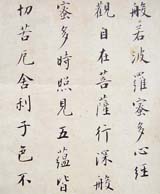 般若波羅蜜多心經
觀自在菩薩行深般
蜜多時照見五蘊皆
切苦厄舍利子色不